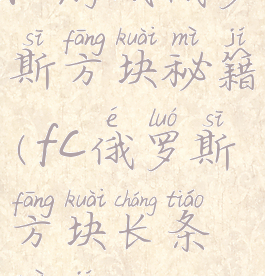 sī fāng kuài mì jí
斯方块秘籍
é luó sī
(fc俄罗斯
fāng kuài cháng tiáo
方块长条